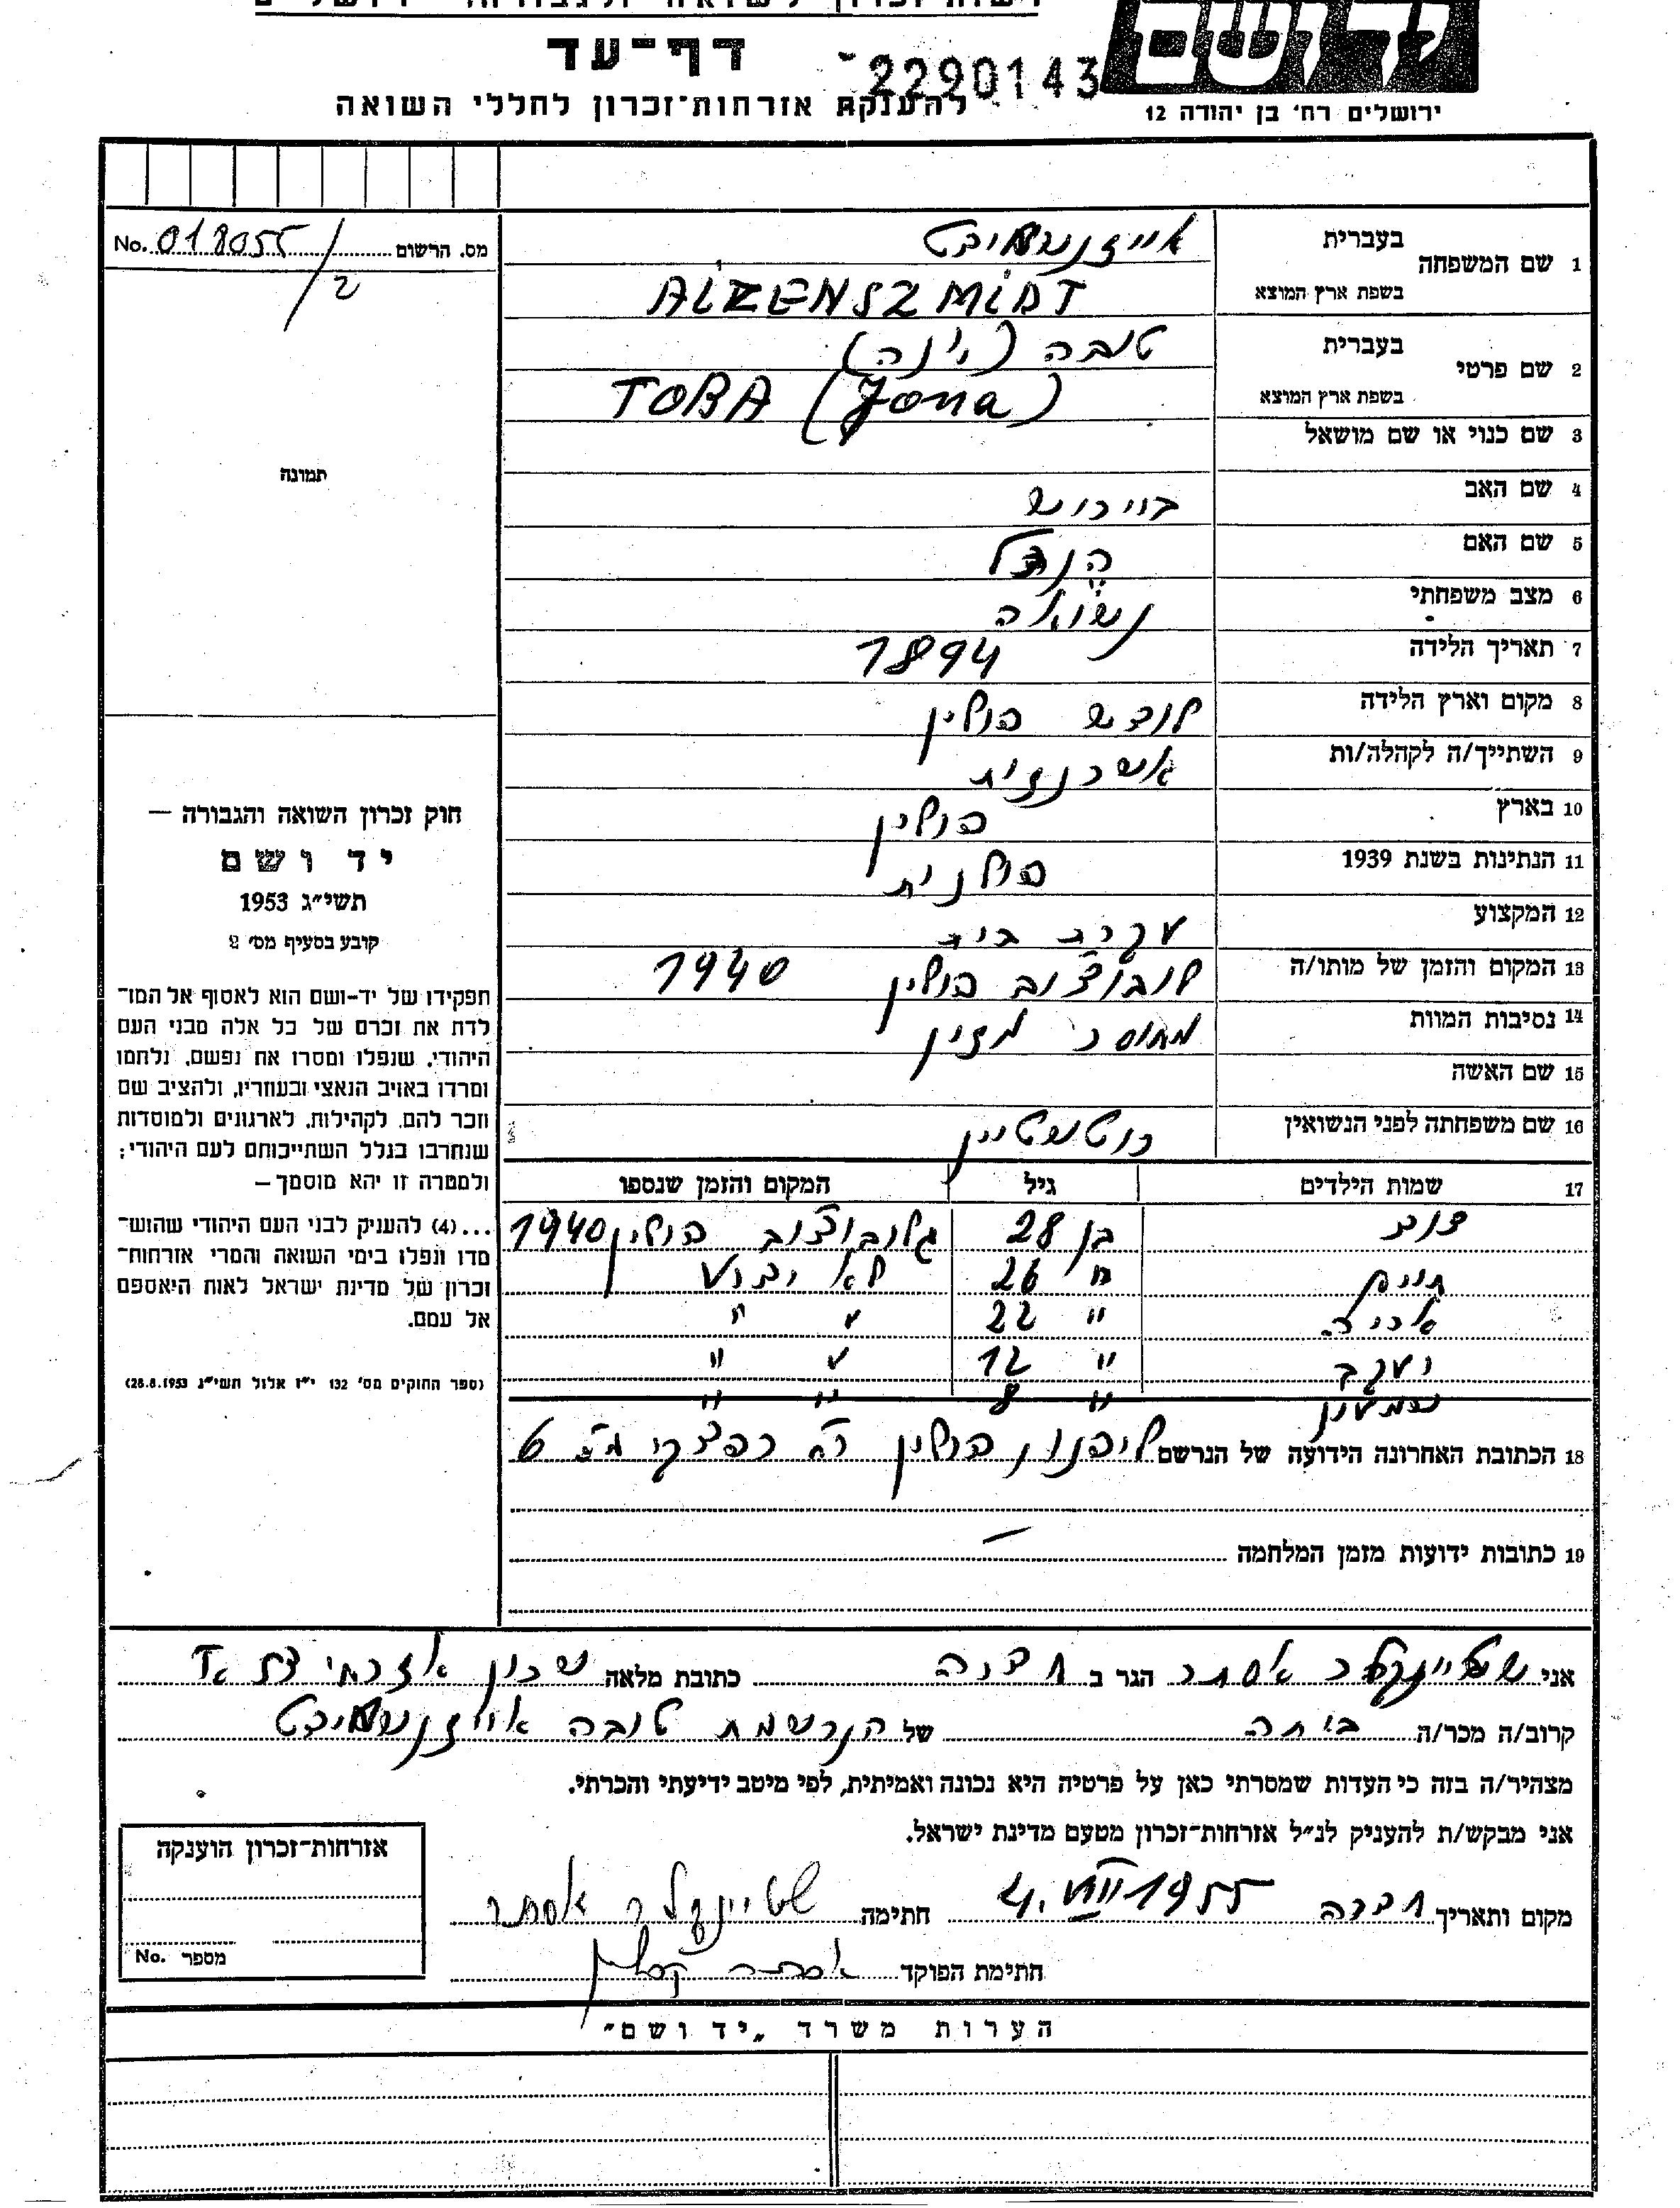 דף-עד
2290143
להענקת אזרחות-זכרון לחללי השואה
ירושלים רח' בן יהודה 12
1 שם המשפחה בעברית
בשפת ארץ המוצא AIZENSZMIDT
2 שם פרטי בעברית טובה (יונה)
בשפת ארץ המוצא TOBA (Jona)
3 שם כנוי או שם מושאל
4 שם האב
5 שם האם הנדל
6 מצב משפחתי נשואה
7 תאריך הלידה 1894
8 מקום וארץ הלידה לודש פולין
9 השתייך/ה לקהלה/ות אשכנזית
10 בארץ פולין
11 הנתינות בשנת 1939 פולנית
12 המקצוע עקרת בית
13 המקום והזמן של מותו/ה פולין 1940
14 נסיבות המוות מחוסר מזון
15 שם האשה
16 שם משפחתה לפני הנשואין
17 שמות הילדים גיל המקום והזמן שנספו
בן 28 פולין 1940
חיים " 26 לא ידוע
אריה " 22 " "
יעקב " 12 " "
" 8 " "
18 הכתובת האחרונה הידועה של הנרשם פולין
19 כתובות ידועות מזמן המלחמה —
מס. הרשום No. 018055/2
תמונה
חוק זכרון השואה והגבורה —
יד ושם
תשי״ג 1953
קובע בסעיף מס׳ 2
תפקידו של יד-ושם הוא לאסוף אל המו־
לדת את זכרם של כל אלה מבני העם
היהודי, שנפלו ומסרו את נפשם, נלחמו
ומרדו באויב הנאצי ובעוזריו, ולהציב שם
וזכר להם, לקהילות, לארגונים ולמוסדות
שנחרבו בגלל השתייכותם לעם היהודי;
ולמטרה זו יהא מוסמך —
...(4) להעניק לבני העם היהודי שהוש־
מדו ונפלו בימי השואה והמרי אזרחות־
זכרון של מדינת ישראל לאות היאספם
אל עמם.
(ספר החוקים מס׳ 132 י״ז אלול תשי״ג 28.8.1953)
אני שטיינקלר אסתר הגר ב חדרה כתובת מלאה שכון אזרחי
קרוב/ה מכר/ה בתה של הנרשמת טובה
מצהיר/ה בזה כי העדות שמסרתי כאן על פרטיה היא נכונה ואמיתית, לפי מיטב ידיעתי והכרתי.
אני מבקש/ת להעניק לנ״ל אזרחות־זכרון מטעם מדינת ישראל.
מקום ותאריך חדרה 4.VII 1955 חתימה שטיינקלר אסתר
חתימת הפוקד
אזרחות־זכרון הוענקה
מספר No.
הערות משרד „יד ושם״